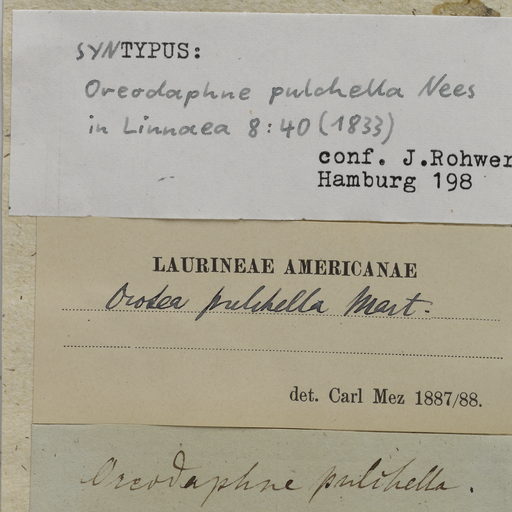 SYNTYPUS:
Oreodaphne pulchella Nees
in Linnaea 8:40 (1833)
conf. J.Rohwer
Hamburg 198
LAURINEAE AMERICANAE
Ocotea pulchella Mart.
det. Carl Mez 1887/88.
Oreodaphne pulchella.